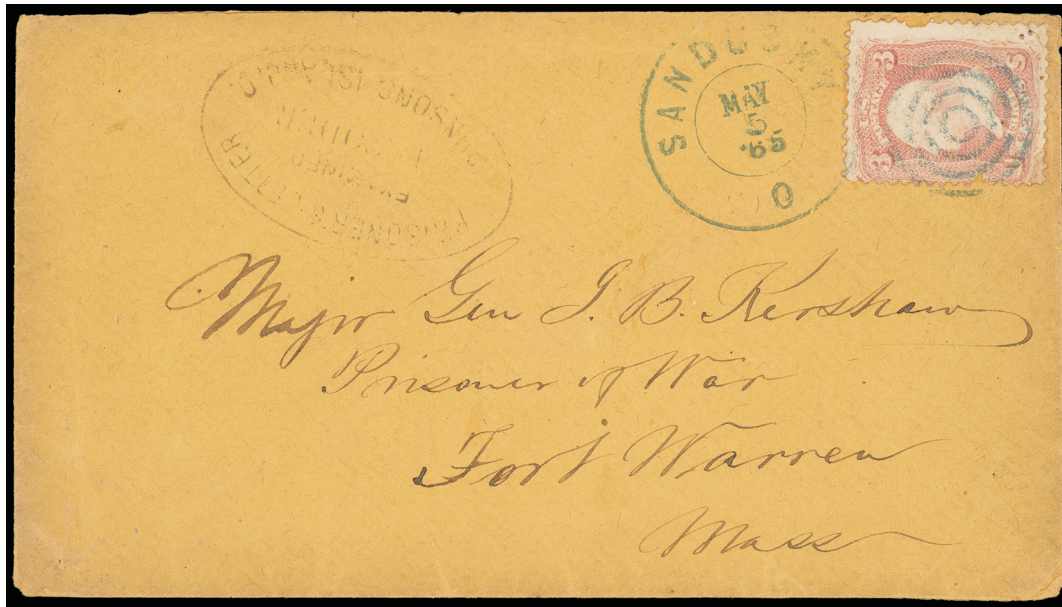 PRISONER'S LETTER
EXAMINED
JOHNSONS ISLAND. O.
SANDUSKY
MAY
5
'65
O
3
3
U S
Major Gen J. B. Kershaw
Prisoner of War
Fort Warren
Mass